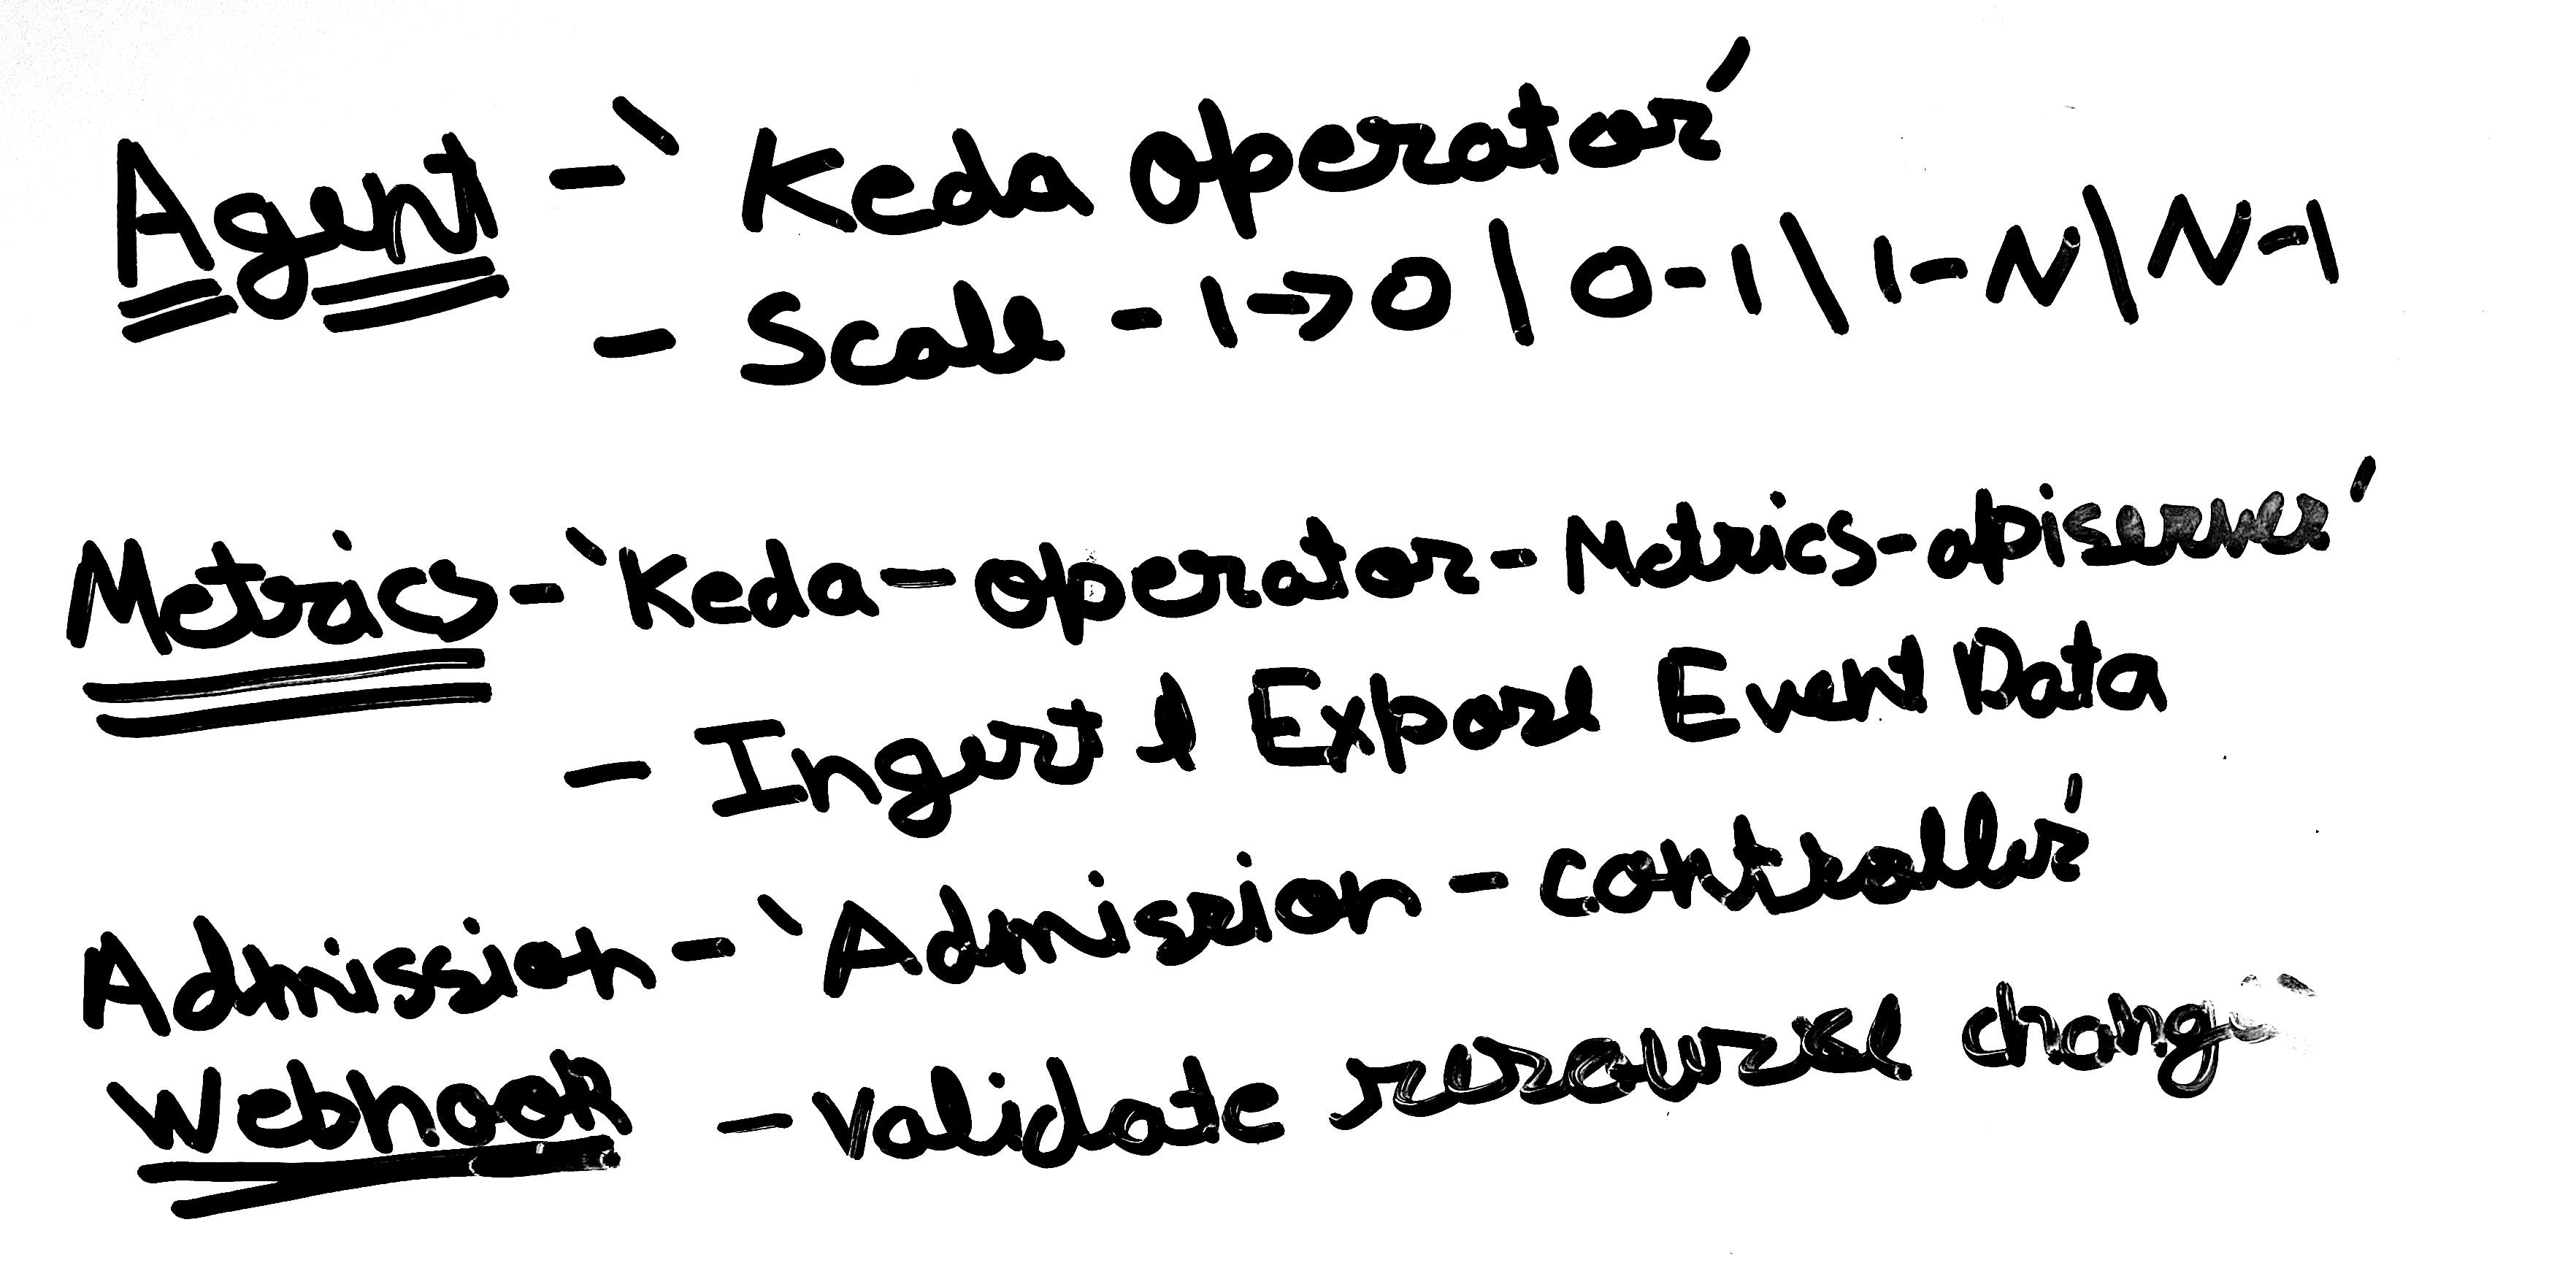 Agent - `Keda operator'
- Scale - 1->0 | 0-1 | 1-N | N-1
Metrics - `Keda-operator-Metrics-apiserver'
- Ingest & Expose Event Data
Admission - `Admission-controller'
Webhook - Validate resource